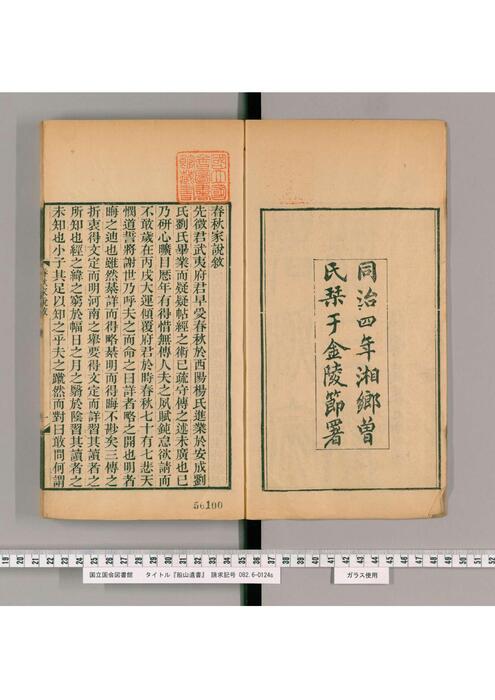 同治四年湘鄉曾
氏栞于金陵節署
春秋家說敘
先徵君武夷府君早受春秋於酉陽楊氏進業於安成劉
氏劉氏畢業而疑疑帖經之術已疏守傳之述未廣也已
乃研心曠目歷年有得惜無傳人夫之夙賦鈍怠欲請而
不敢歲在丙戌大運傾覆府君於時春秋七十有七悲天
憫道誓將謝世乃呼夫之而命之曰詳者略之開也明者
晦之迪也雖然綦詳而得略綦明而得晦不尠矣三傳之
折衷得文定而明河南之舉要得文定而詳習其讀者之
所知也經之緯之窮於幅日之月之翳於陰習其讀者之
未知也小子其足以知之乎夫之蹴然而對曰敢問何謂
春秋家說敘
一
56100
19 20 21 22 23 24 25 26 27 28 29 30 31 32 33 34 35 36 37 38 39 40 41 42 43 44 45 46 47 48 49 50 51 52
国立国会図書館 タイトル『船山遺書』 請求記号 082.6-0124s
ガラス使用